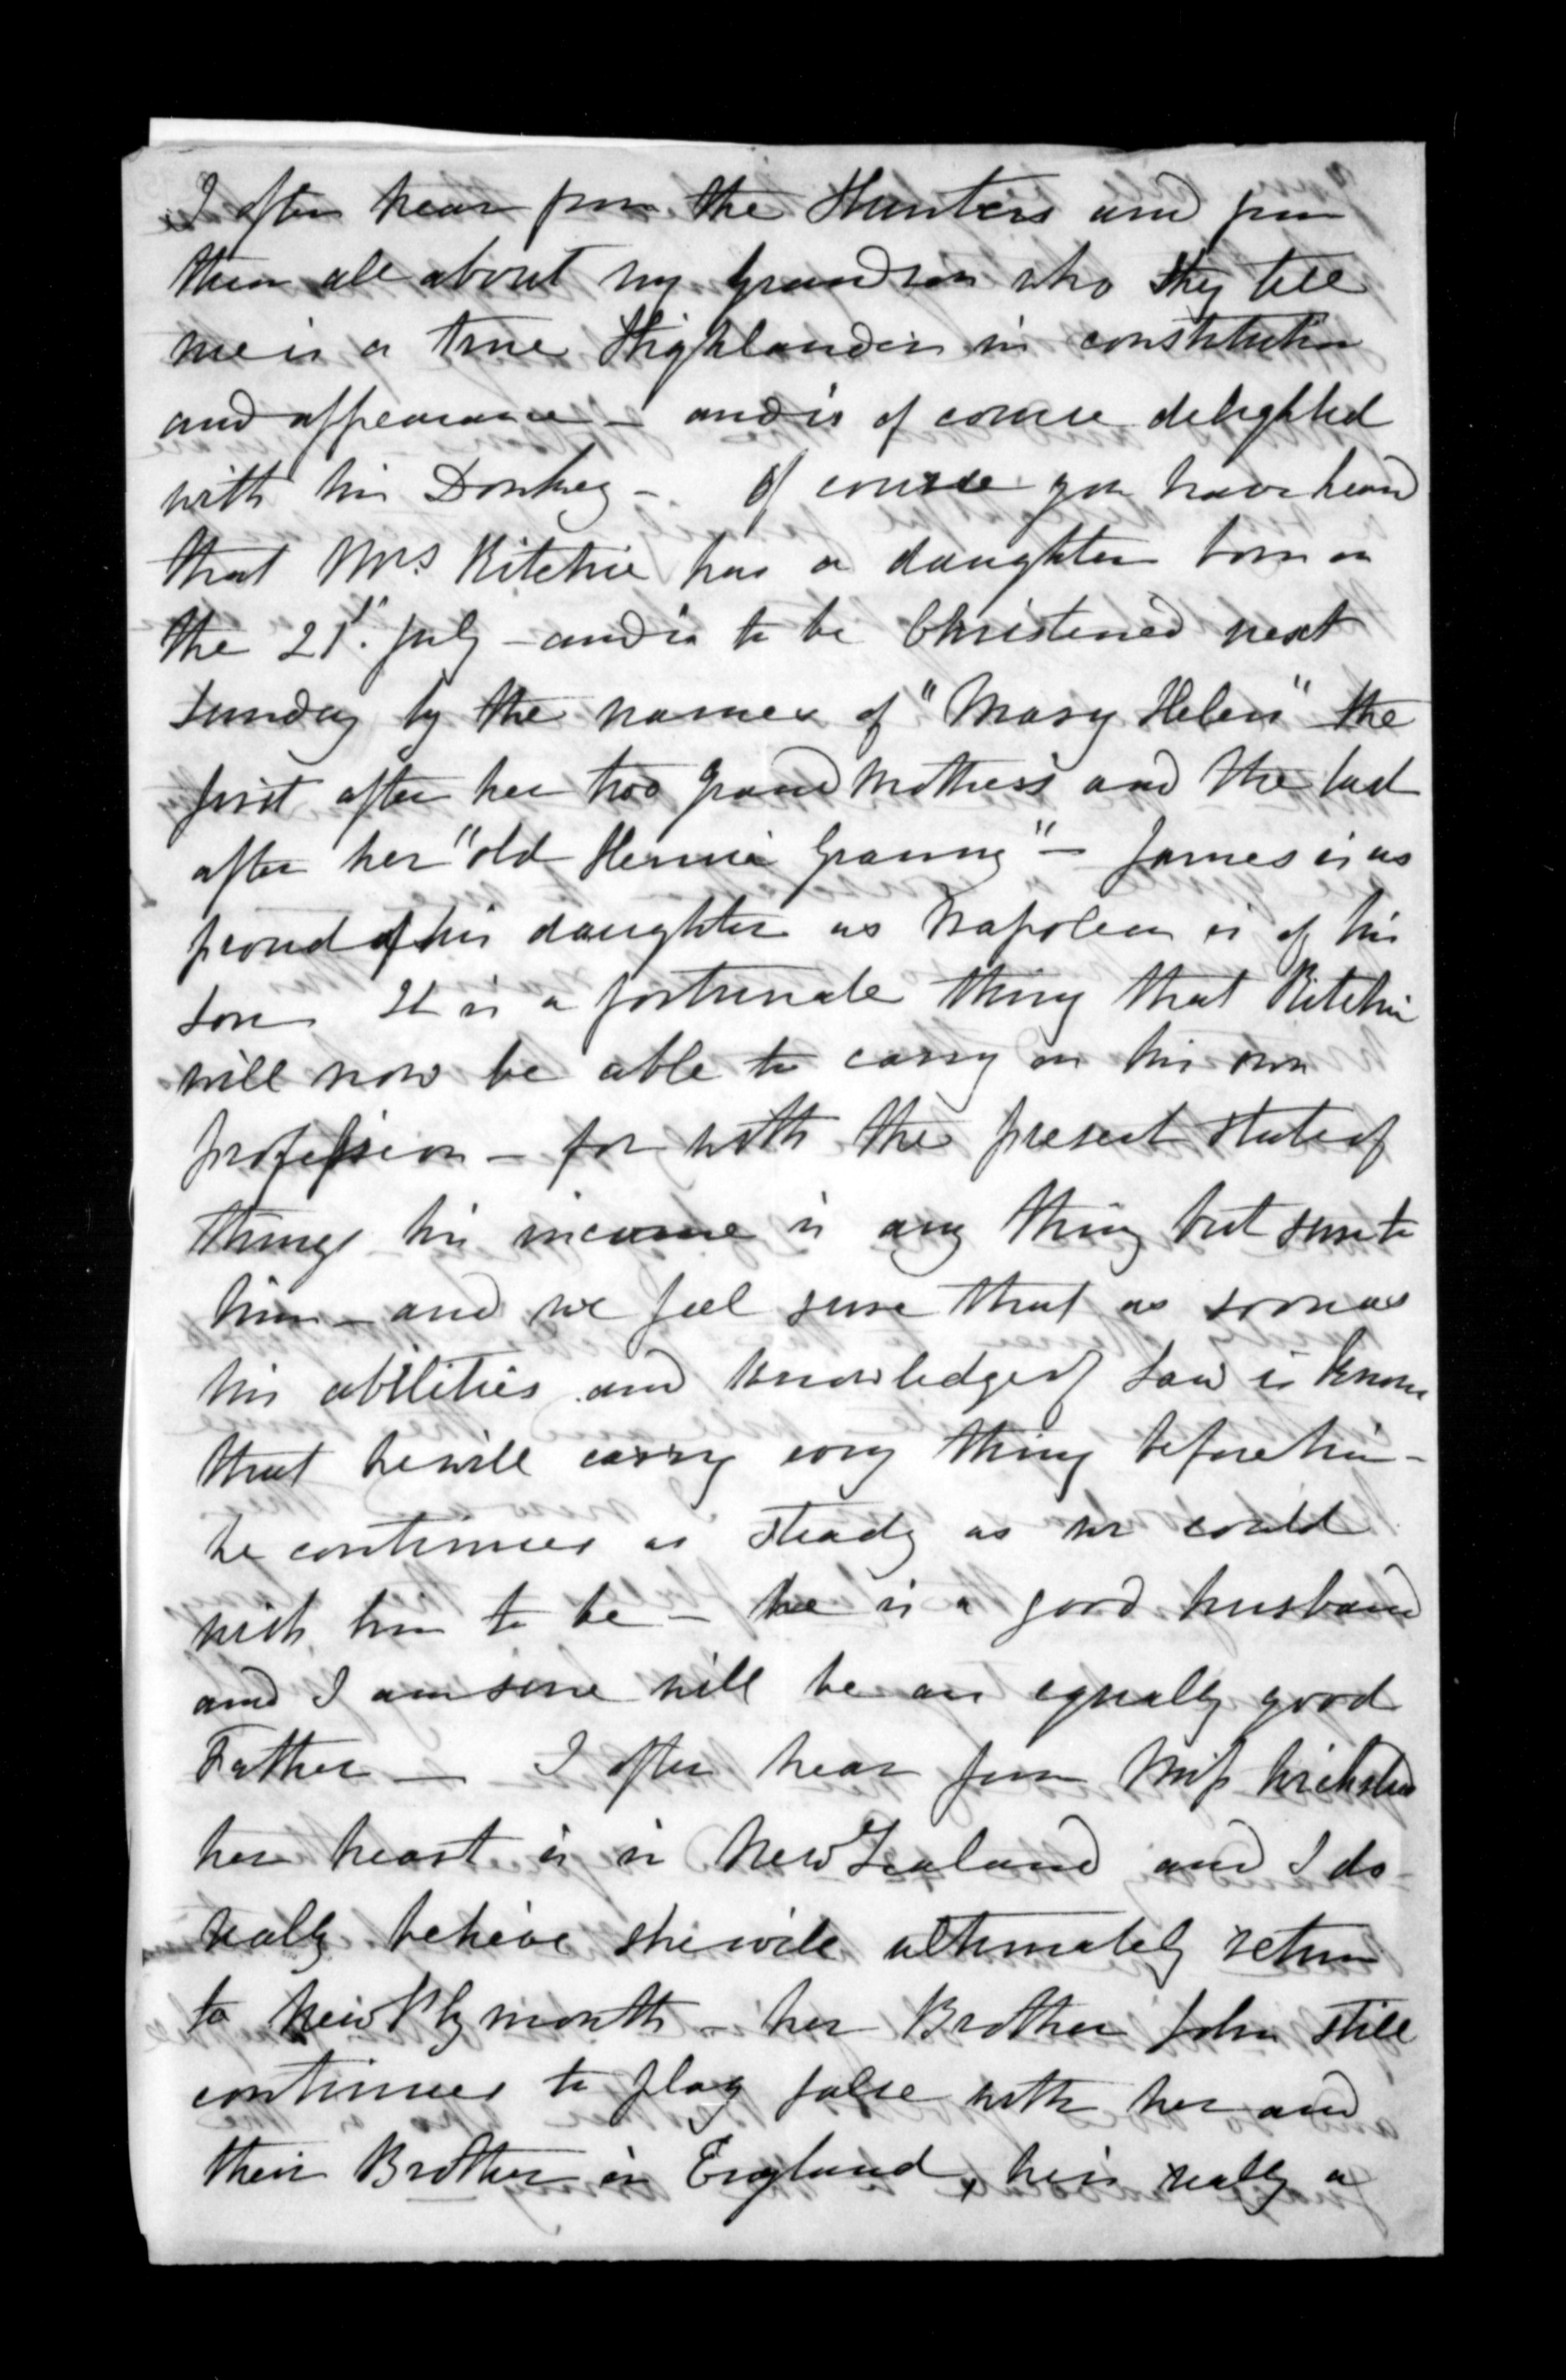 I often hear from the Hunters and from
them all about my Grandson who they tell
me is a true Highlander in constitution
and appearance – and is of course delighted
with his Donkey –. Of course you have heard
that Mrs Ritchie has a daughter born on
the 21st. July – and is to be Christened next
Sunday by the names of "Mary Helen" the
first after her two Grand Mothers and the last
after her "old Granny" – James is as
proud of his daughter as Napoleon is of his
son. It is a fortunate thing that Ritchie
will now be able to carry on his own
profession – for with the present state of
things his income is any thing but sure to
him – and we feel sure that as soon as
his abilities and knowledge of Law is known
that he will carry every thing before him –
he continues as steady as we could
wish him to be – he is a good husband
and I am sure will be an equally good
Father — I often hear from Miss
her heart is in New Zealand and I do
really believe she will ultimately return
to New Plymouth – her Brother John still
continues to play false with her and
their Brother in England, he is really a